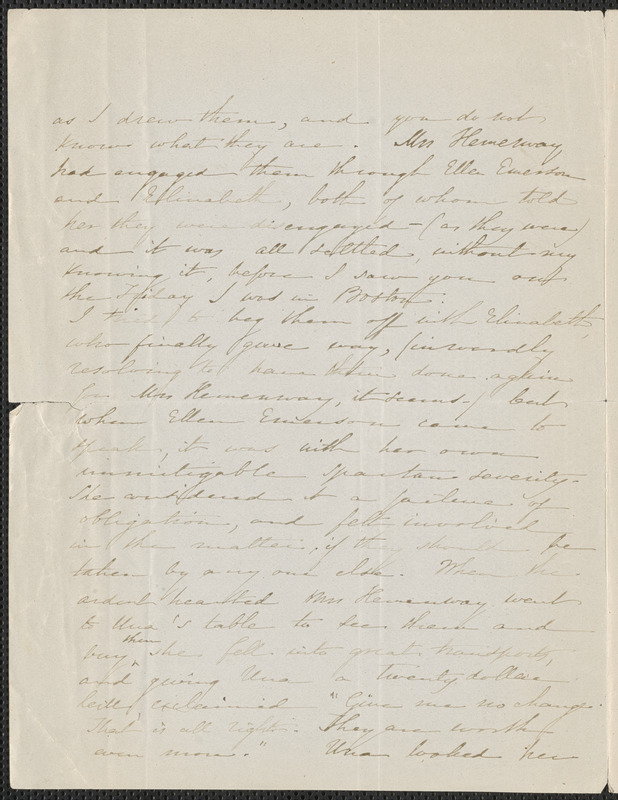 as I drew them, and you do not
know what they are. Mrs Hemenway
had engaged them through Ellen Emerson
and Elizabeth, both of whom told
her they were disengaged – (as they were)
and it was all settled, without my
knowing it, before I saw you on
the Friday I was in Boston.
I tried to beg them off with Elizabeth,
who finally gave way, (inwardly
resolving to have them done again
for Mrs Hemenway, it seems –) but
when Ellen Emerson came to
speak, it was with her own
unmitigable Spartan severity.
She considered it a failure of
obligation, and felt involved
in the matter, if they should be
taken by any one else. When the
ardent hearted Mrs Hemenway went
to Una's table to see them and
buy them she fell into great transports,
and giving Una a twenty dollar
bill, exclaimed "Give me no change.
That is all right. They are worth
even more." Una looked her